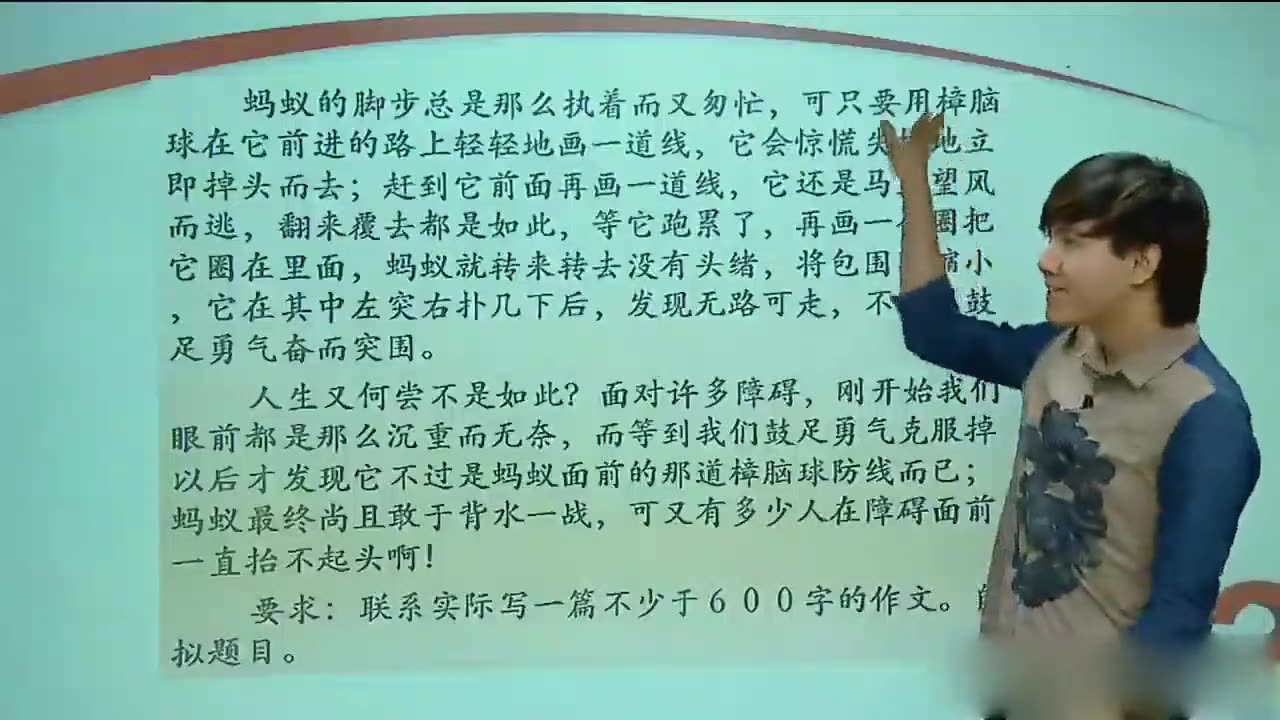 蚂蚁的脚步总是那么执着而又匆忙，可只要用樟脑
球在它前进的路上轻轻地画一道线，它会惊慌失 地立
即掉头而去；赶到它前面再画一道线，它还是马 望风
而逃，翻来覆去都是如此，等它跑累了，再画一 圈把
它圈在里面，蚂蚁就转来转去没有头绪，将包围 缩小
，它在其中左突右扑几下后，发现无路可走，不 鼓
足勇气奋而突围。
人生又何尝不是如此？面对许多障碍，刚开始我们
眼前都是那么沉重而无奈，而等到我们鼓足勇气克服掉
以后才发现它不过是蚂蚁面前的那道樟脑球防线而已；
蚂蚁最终尚且敢于背水一战，可又有多少人在障碍面前
一直抬不起头啊！
要求：联系实际写一篇不少于６００字的作文。
拟题目。